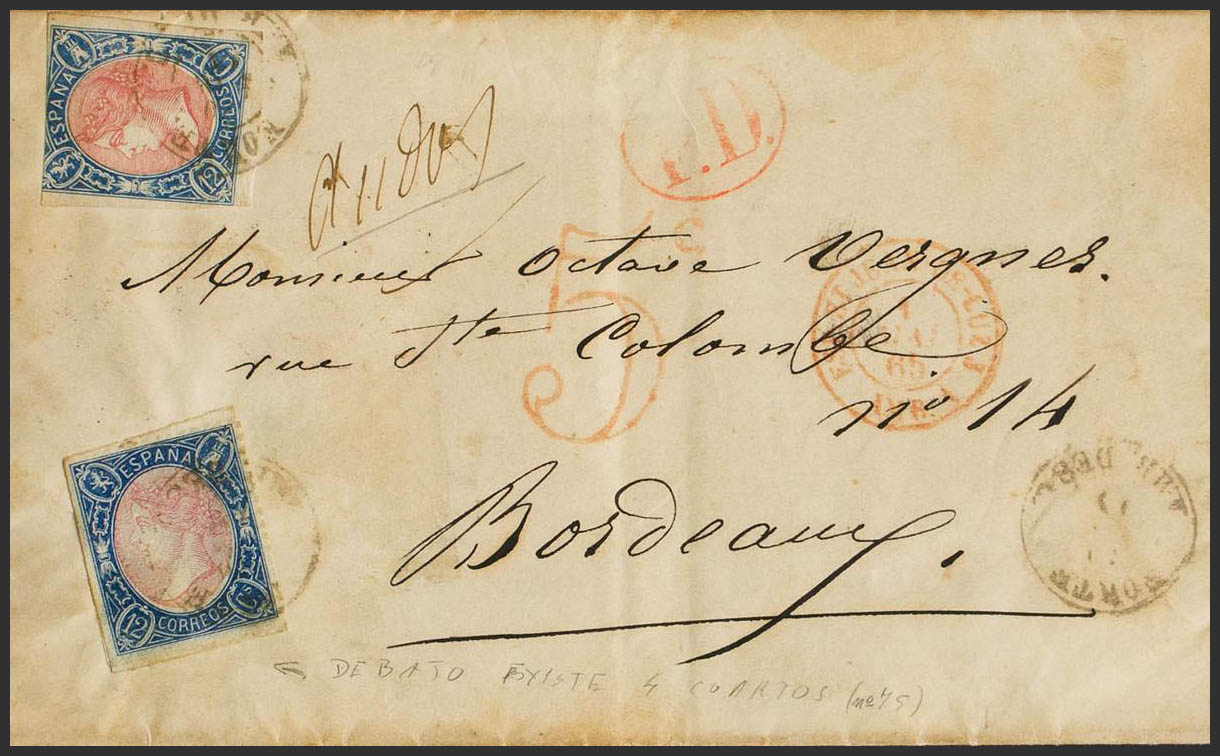 ESPAÑA
CORREOS
12 Cs
P.D.
5
Monsieur Octave Vergnes.
rue Ste Colombe.
no 14
Bordeaux.
65
ESPAÑA
12 CORREOS Cs
NORTE
DEBAJO EXISTE 4 CUARTOS (nº 75)